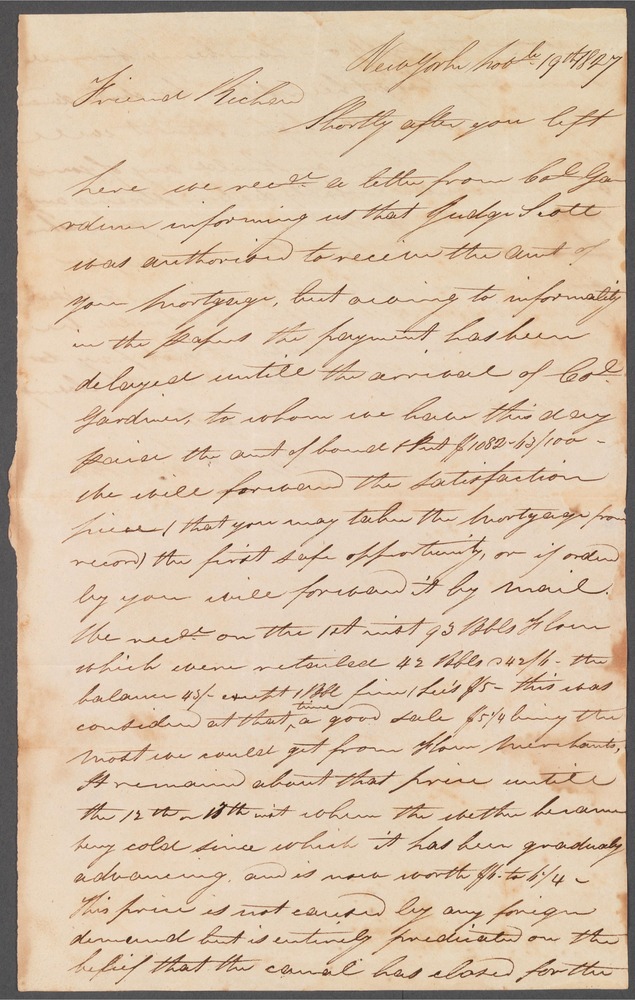 New York Novbr 19th 1827
Friend Richard
Shortly after you left
here we recd a letter from Col Ga
rdiner informing us that Judge Scott
was authorised to receive the amt of
your Mortgage, but owing to informality
in the papers the payment has been
delayed untill the arrival of Col
Gardiner, to whom we have this day
paid the amt of bond & Int $1082-43/100-
We will forward the satisfaction
piece (that you may take the Mortgage from
record) the first safe opportunity, or if orderd
by you will forward it by mail.
We recd on the 1st inst 93 Bbls Flour
which were retailed 42 Bbls @ 42/6 - the
balance 43/- exept 1 Bbl fine $5- this was
considerd at that time a good sale $5 1/4 being the
most we could get from Flour Merchants,
It remaind about that price untill
the 12th or 13th inst when the wether became
very cold since which it has been gradually
advancing. and is now worth $6- to 6 1/4 -
This price is not caused by any foreign
demand but is entirely predicated on the
belief that the canal has closed for the